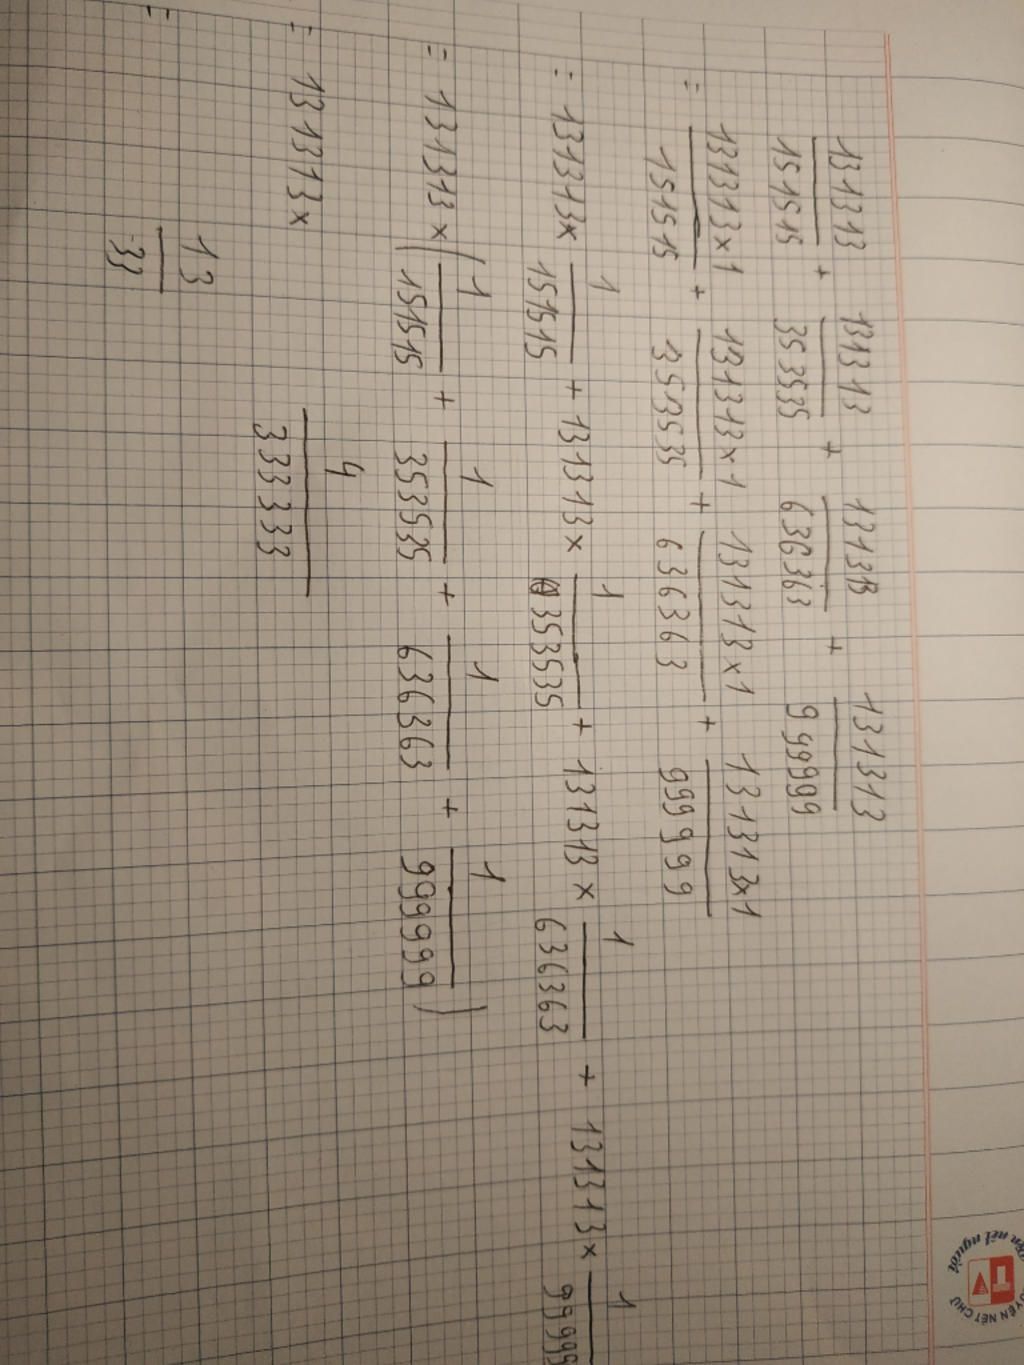 131313/151515 + 131313/353535 + 131313/636363 + 131313/999999
= 131313x1/151515 + 131313x1/353535 + 131313x1/636363 + 131313x1/999999
= 131313x 1/151515 + 131313x 1/353535 + 131313x 1/636363 + 131313x 1/99999
= 131313x(1/151515 + 1/353535 + 1/636363 + 1/999999)
= 131313x 4/333333
= 13/33
nết người
NÉT CHỮ